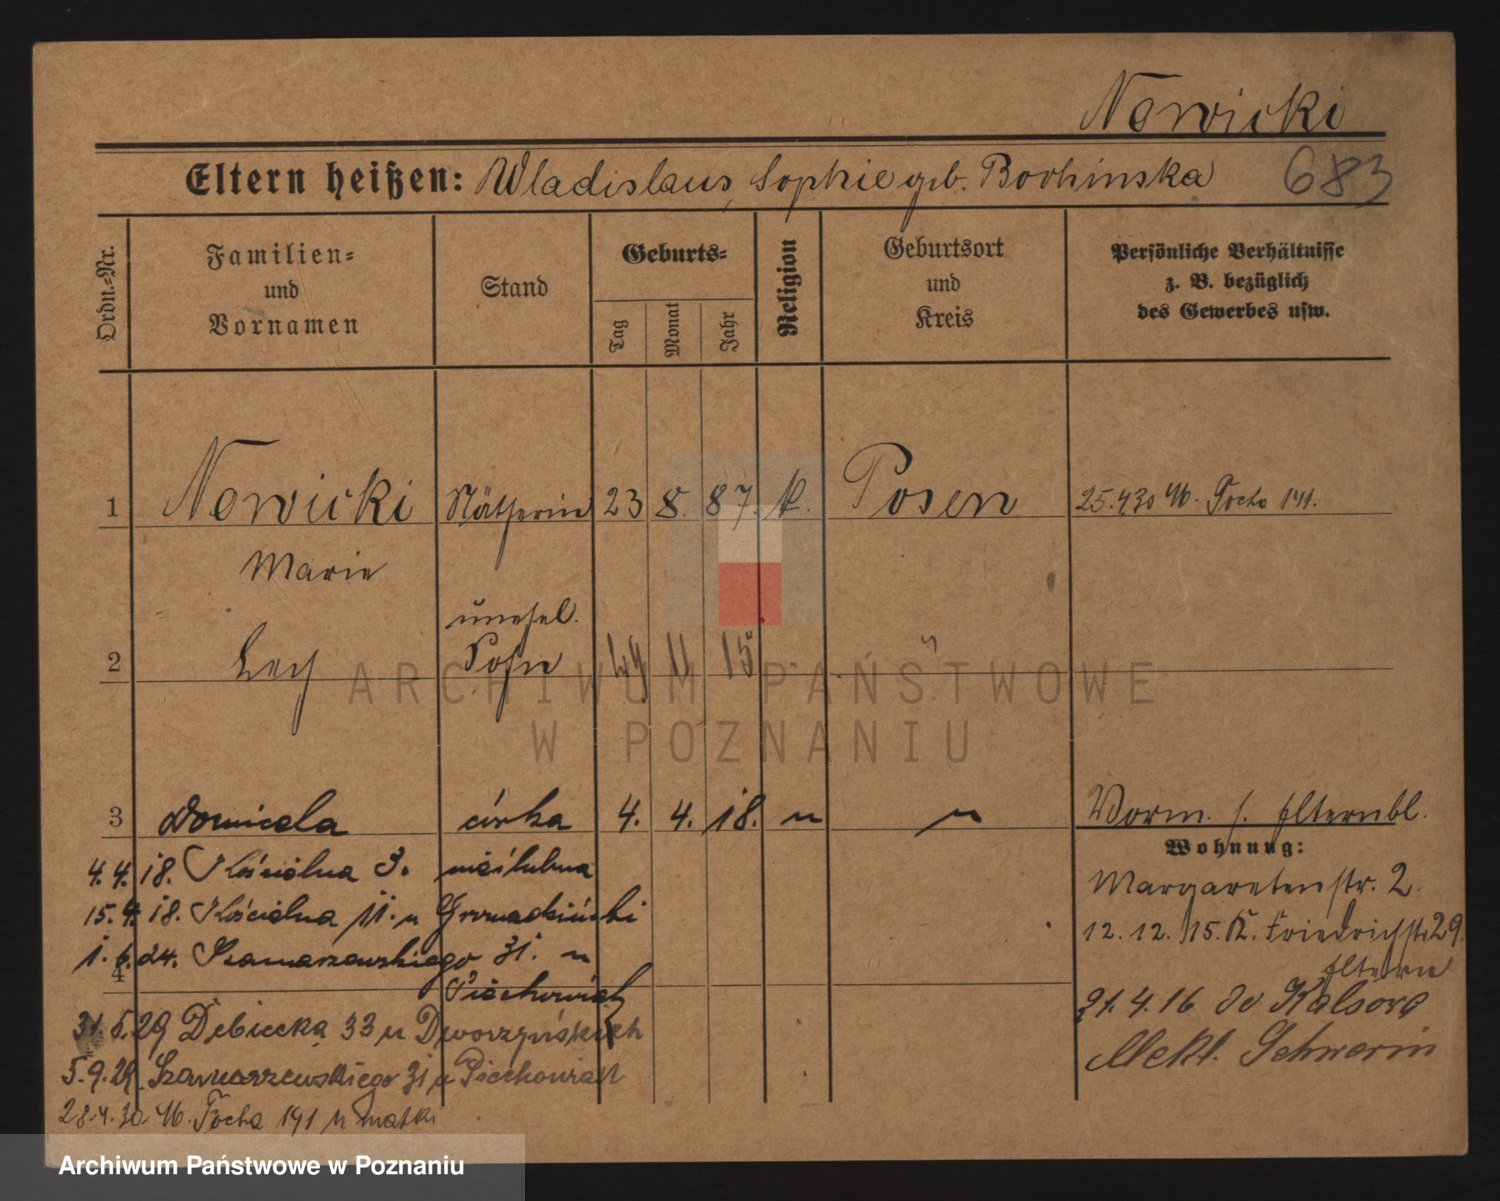 Nowicki
Eltern heißen: Wladislaus, Sophie geb. Borhinska 683
Ordn.-Nr.
Familien- und Vornamen
Stand
Geburts-
Tag
Monat
Jahr
Religion
Geburtsort und Kreis
Persönliche Verhältnisse
z. B. bezüglich
des Gewerbes usw.
1 Nowicki Nätherin 23 8. 87. k. Posen 25.4.30 Focha 141.
Marie
unehel.
2 Lech Sohn 11 15 "
3 Domicela córka 4. 4. 18. " " Vorm. s. Elternbl.
Wohnung:
4.4.18. Kościelna 3. nieślubna
Margaretenstr. 2.
15.4.18. Kościelna 11. u Gromadziński
12.12.15. K. Friedrichstr. 29.
Eltern
1.6.24. Szamarzewskiego 31. u
4 Piechowiak
21.4.16 Kalsow
31.5.29 Dębiecka 33 u Dworzyńskich
Meckl. Schwerin
5.9.29. Szamarzewskiego 31 u Piechowiak
28.4.30 Focha 191 u matki
ARCHIWUM PAŃSTWOWE
W POZNANIU
Archiwum Państwowe w Poznaniu